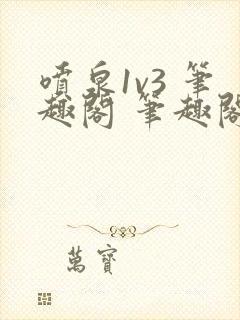 噴泉1v3 筆
趣閣 筆趣閣
萬寶